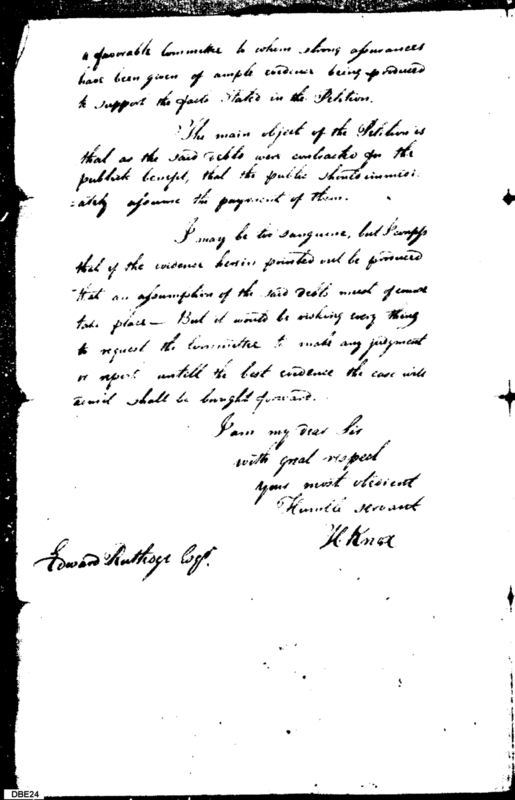 a favorable Committee to whom strong assurances
have been given of ample evidence being produced
to support the facts stated in the Petition.
The main object of the Petition is
that as the said debts were contracted for the
publick benefit, that the public should immedi-
-ately assume the payment of them.
I may be too sanguine, but I confess
that if the evidence herein pointed out be produced
that an assumption of the said debts must of course
take place — But it would be risking every thing
to request the Committee to make any judgment
or report untill the best evidence the case will
admit shall be brought forward.
I am my dear Sir
with great respect
your most obedient
Humble servant
H Knox
Edward Rutledge Esqr.
DBE24